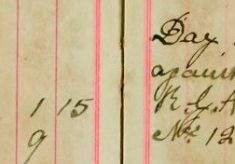 Day
again
1 15 R. G. A
9 No. 12